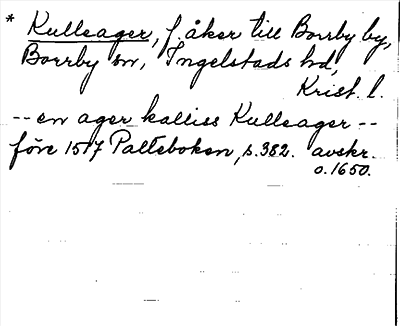 * Kulleager, f. åker till Borrby by,
Borrby sn, Ingelstads hd,
Krist. l.
-- en ager kalliss Kulleager --
före 1517 Palteboken, s. 382. avskr.
o. 1650.